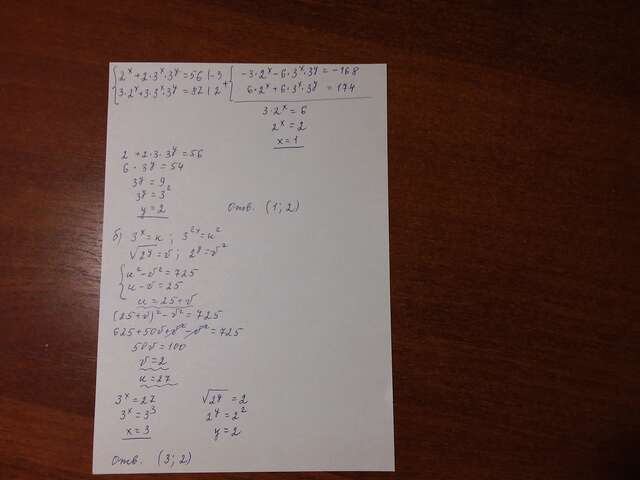 2ˣ + 2·3ˣ·3ʸ = 56 | -3
3·2ˣ + 3·3ˣ·3ʸ = 82 | 2
+ { -3·2ˣ - 6·3ˣ·3ʸ = -168
6·2ˣ + 6·3ˣ·3ʸ = 174
3·2ˣ = 6
2ˣ = 2
x = 1
2 + 2·3·3ʸ = 56
6·3ʸ = 54
3ʸ = 9
3ʸ = 3²
y = 2
Отв. (1; 2)
б) 3ˣ = u ; 3²ˣ = u²
√2ʸ = v ; 2ʸ = v²
{ u² - v² = 725
u - v = 25
u = 25 + v
(25 + v)² - v² = 725
625 + 50v + v² - v² = 725
50v = 100
v = 2
u = 27
3ˣ = 27
3ˣ = 3³
x = 3
√2ʸ = 2
2ʸ = 2²
y = 2
Отв. (3; 2)